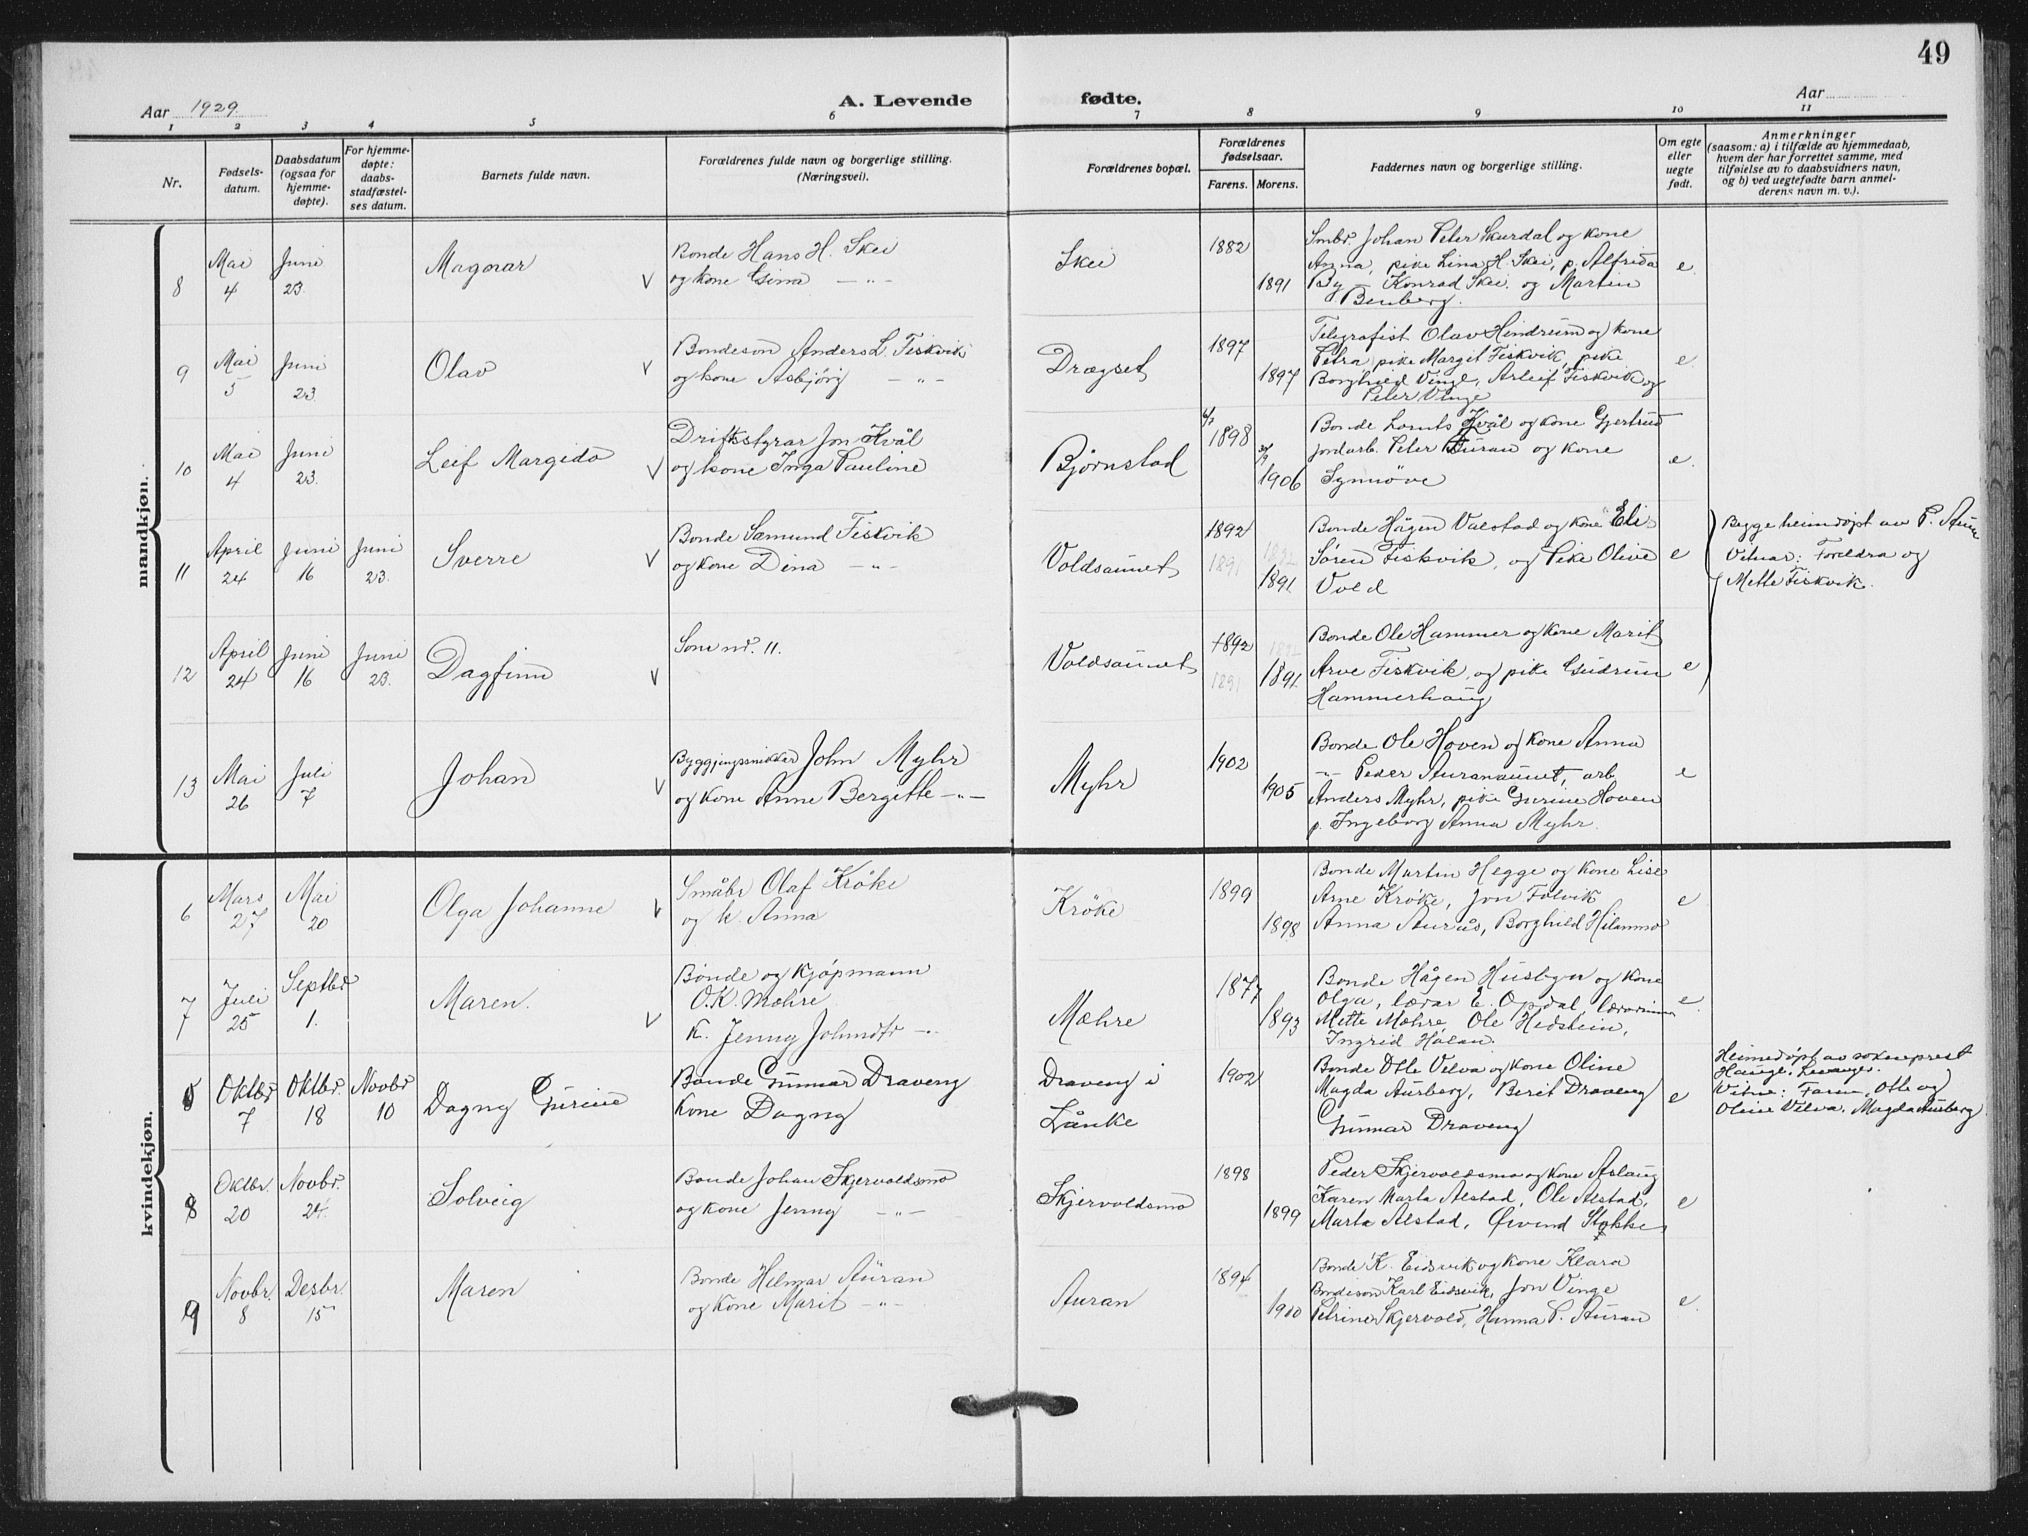 49
Aar 1929
A. Levende fødte.
Aar
1 2 3 4 5 6 7 8 9 10 11
Nr.
Fødsels-
datum.
Daabsdatum
(ogsaa for
hjemme-
døpte).
For hjemme-
døpte:
daabs-
stadfæstel-
ses datum.
Barnets fulde navn.
Forældrenes fulde navn og borgerlige stilling.
(Næringsvei).
Forældrenes bopæl.
Forældrenes
fødselsaar.
Farens. Morens.
Faddernes navn og borgerlige stilling.
Om egte
eller
uegte
født.
Anmerkninger
(saasom: a) i tilfælde av hjemmedaab,
hvem der har forrettet samme, med
tilføielse av to daabsvidners navn,
og b) ved uegtefødte barn anmel-
derens navn m. v.).
mandkjøn.
8 Mai 4 Juni 23. Magnar V
Bonde Hans H. Skei
og kone Gina — " —
Skei 1882 1891
Smbr. Johan Peter Skurdal og kone
Anna, pike Lina H. Skei, p. Alfrida
By — Konrad Skei. og Martin
Benberg.
e
9 Mai 5 Juni 23 Olav V
Bondeson Anders L. Fiskvik
og kone Asbjörg — " —
Drægset 1897 1897
Telegrafist Olav Hindrum og kone
Petra, pike Margit Fiskvik, pike
Borghild Vinge, Arleif Fiskvik og
Peter Vinge
e
10 Mai 4 Juni 23. Leif Margido V
Driftsstyrar Jon Kvål
og kone Inga Pauline
Bjørnstad 1898 1906
Bonde Lornts Kvål og kone Gjertrud
jordarb. Peter Auran og kone
Synnöve
e.
11 April 24 Juni 16 Juni 23. Sverre V
Bonde Sæmund Fiskvik
og kone Dina — " —
Voldsaunet 1892 1891 1892 1891
Bonde Hågen Valstad og kone Eli
Søren Fiskvik, og Pike Olive
Vold
e
Begge heimdøpt av P. Aune
Vitnar: Foreldra og
Mette Fiskvik.
12 April 24 Juni 16 Juni 23. Dagfinn V
Som nr. 11.
Voldsaunet 1892 1891 1892 1891
Bonde Ole Hammer og kone Marit
Arve Fiskvik, og pike Gudrun
Hammerhaug
e
13 Mai 26 Juli 7 Johan V
Byggjingssnikkar John Myhr
og kone Anne Bergitte — " —
Myhr 1902 1905
Bonde Ole Hoven og kone Anna
— " — Peder Auranaunet, arb
Anders Myhr, pike Gurine Hoven
p. Ingeborg Anna Myhr.
e
kvindekjøn.
6 Mars 27 Mai 20 Olga Johanne V
Småbr Olaf Kröke
og k. Anna
Kröke 1899 1898
Bonde Martin Hegge og kone Lise
Arne Kröke, Jon Folvik
Anna Aurås, Borghild Hilammo
e
7 Juli 25 Septbr 1. Maren. V
Bonde og Kjöpmann
O.K. Mæhre
K. Jenny Johndtr — " —
Mæhre 1877 1893
Bonde Hågen Husbyn og kone
Olga, lærar E. Opdal, lærarinna
Mette Mæhre, Ole Hidstein,
Ingrid Haldan.
e.
8 Oktbr 7 Oktbr. 18 Novbr 10 Dagny Gurine
Bonde Gunnar Draveng
Kone Dagny
Draveng i
Lånke
1902
Bonde Otte Velva og kone Oline
Magda Aurberg, Berit Draveng
Gunnar Draveng
e
Heimedöpt av sokneprest
Hauge, Levanger.
Vitne: Faren, Otte og
Oline Velva. Magda Aurberg
8 Oktbr. 20 Novbr. 24. Solveig
Bonde Johan Skjervoldsmo
og kone Jenny — " —
Skjervoldsmo 1898 1899
Peder Skjervoldsmo og kone Aslaug
Karen Marta Alstad, Ole Alstad,
Marta Alstad, Øivind Stokke
e
9 Novbr. 8 Desbr. 15 Maren
Bonde Helmar Auran
og kone Marit — " —
Auran 1894 1900
Bonde K. Eidsvik og kone Klara
Bondeson Karl Eidsvik, Jon Vinge
Petrine Skjervold, Hanna P. Auran
e.